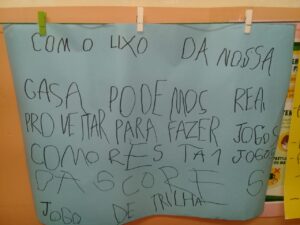 COM O LIXO DA NOSSA
CASA PODEMOS REA
PROVEITAR PARA FAZER JOGOS
COMO RESTA 1 JOGO
DAS CORES
JOGO DE TRILHA